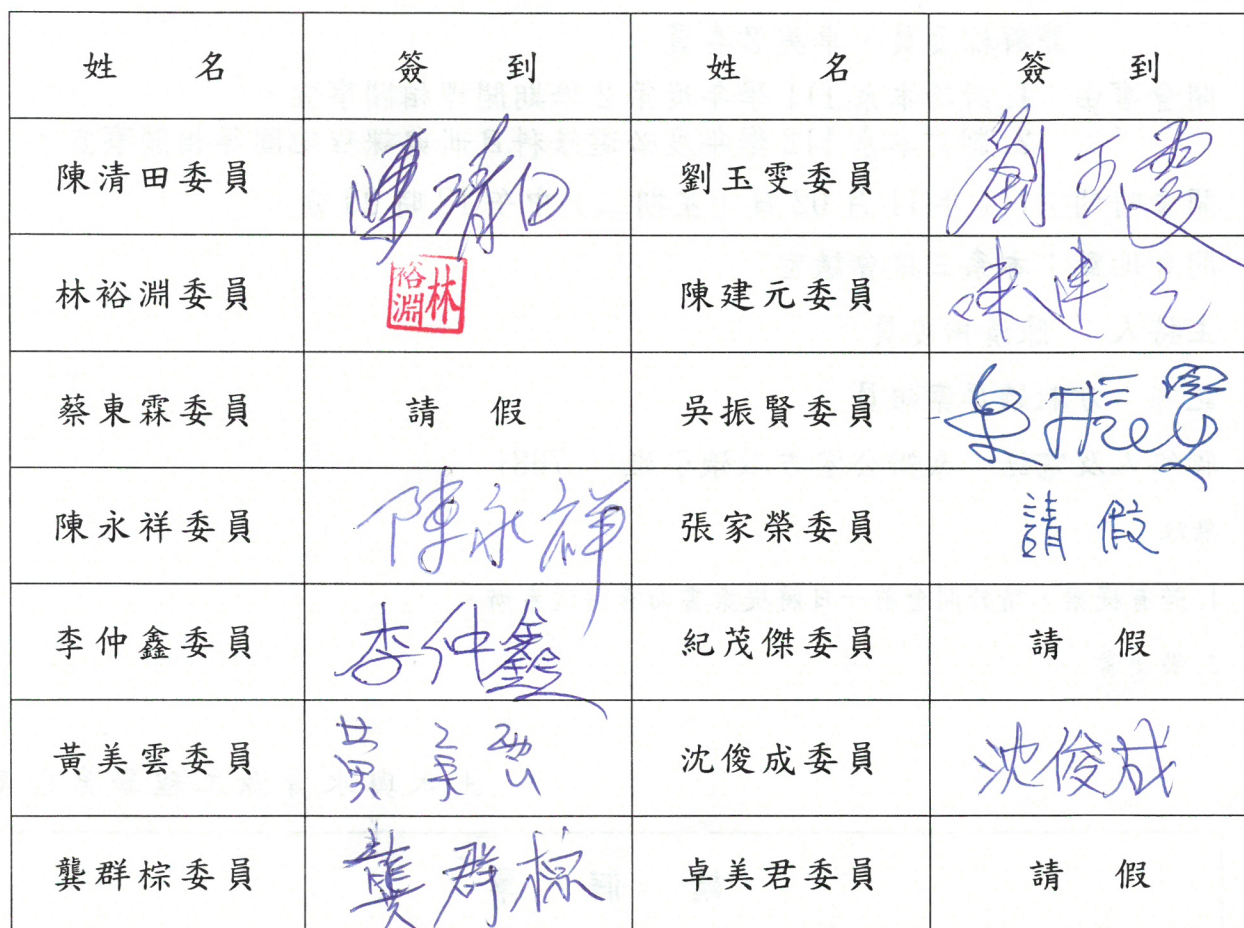 姓 名 簽 到 姓 名 簽 到
陳清田委員 陳清田 劉玉雯委員 劉玉雯
林裕淵委員 林裕淵 陳建元委員 陳建元
蔡東霖委員 請 假 吳振賢委員 吳振賢
陳永祥委員 陳永祥 張家榮委員 請假
李仲鑫委員 李仲鑫 紀茂傑委員 請 假
黃美雲委員 黃美雲 沈俊成委員 沈俊成
龔群棕委員 龔群棕 卓美君委員 請 假